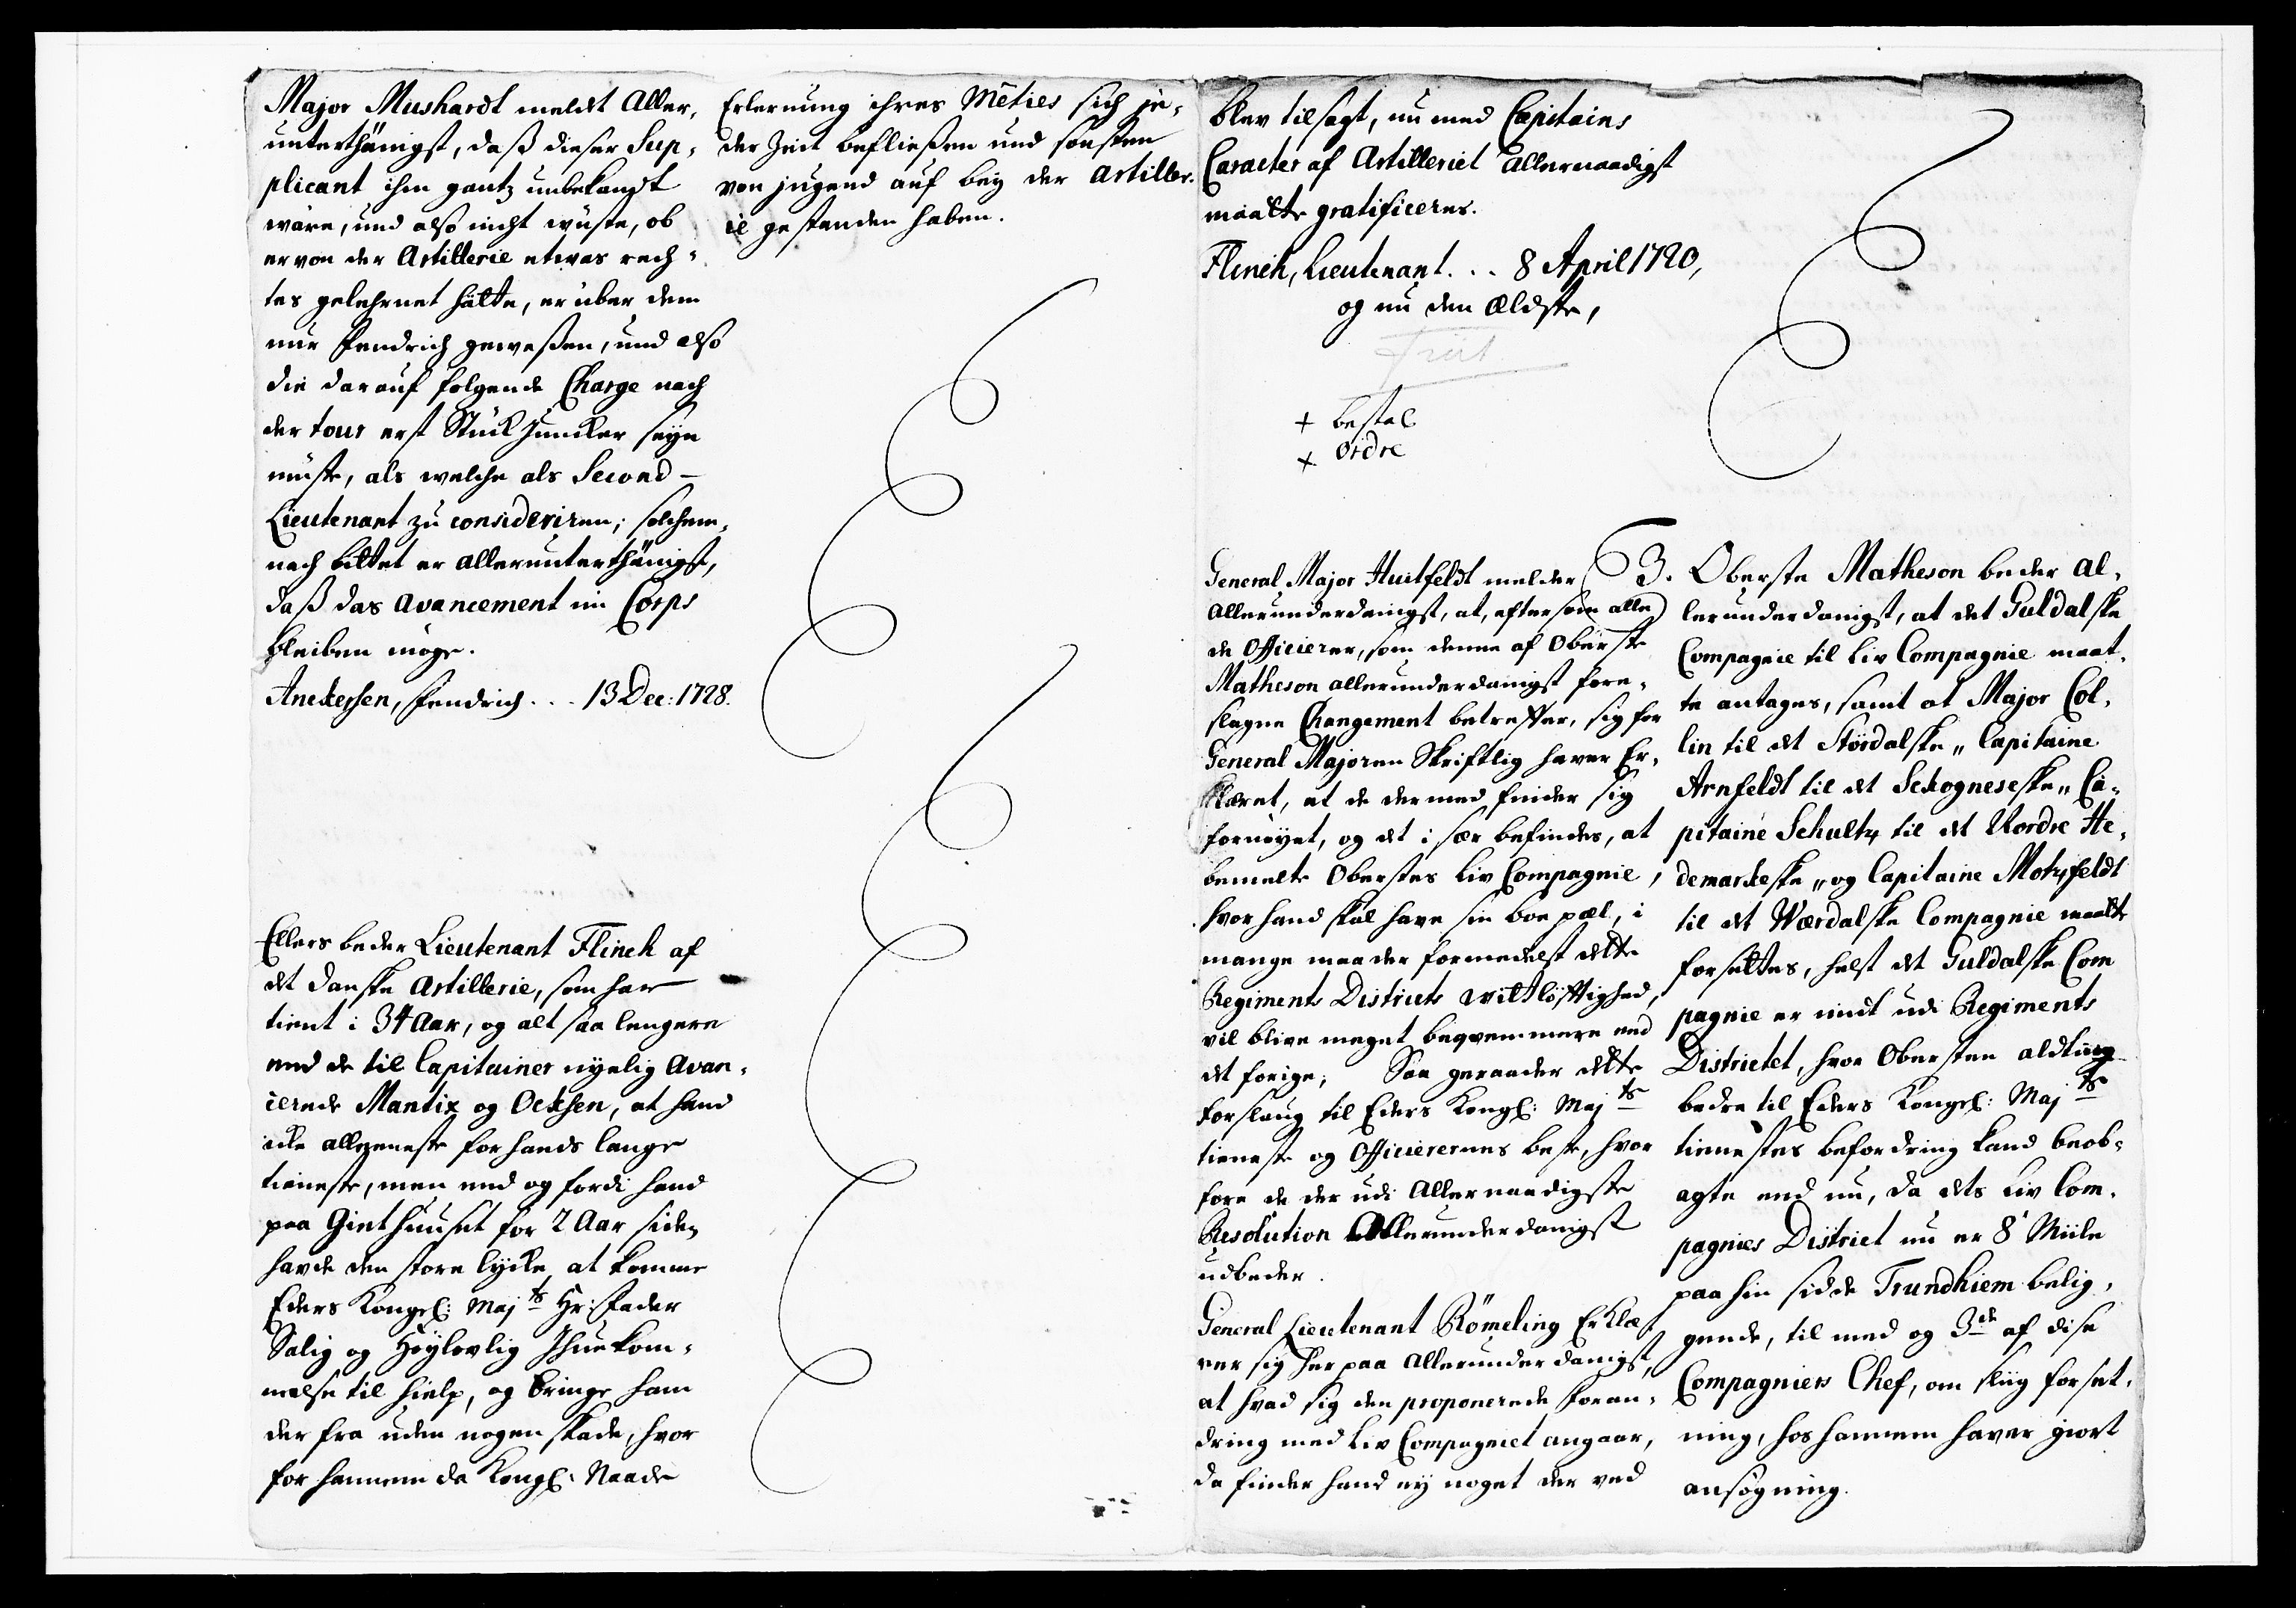 Major Mushardt meldt Aller-
unterthänigst, daß dieser Sup-
plicant ihm gantz unbekandt
wäre, und also nicht wüste, ob
er von der Artillerie etwas rech-
tes gelehrnet hätte, er über dem
nur Fendrich gewesen, und also
die darauf folgende Charge nach
der tour erst Stück Juncker seyn
müste, als welche als Second-
Lieutenant zu consideriren; solchem-
nach bittet er allerunterthänigst,
daß das avancement im Corps
bleiben möge.
Aneckersen, Fendrich... 13 Dec: 1728.
Ellers beder Lieutenant Flinch af
det danske Artillerie, som har
tient i 34 Aar, og alt saa lengere
end de til Capitainer nyelig Avan-
cerede Mantix og Ocksen, at hand
icke alleeneste for hands lange
tieneste, men end og fordi hand
paa Giethuuset for 2 Aar siden
havde den store lycke, at komme
Eders Kongel: Majts Hr: Fader
Salig og Høylovlig Ihukom-
melse til hielp, og bringe ham
der fra uden nogen skade, hvor
for hannem da Kongl: Naade
Erlernung ihres Mêties sich je-
der Zeit befließen und sonsten
von jugend auf bey der Artiller-
ie gestanden haben.
blev tilsagt, nu med Capitains
Caracter af Artilleriet allernaadigst
maatte gratificeres.
Flinch, Lieutenant... 8 April 1720,
og nu den Ældste,
+ bestal
+ Ordre
General Major Huitfeldt melder
Allerunderdanigst, at, eftersom alle
de Officierer, som denne af Oberste
Matheson allerunderdanigst fore-
slagne Changement betreffer, sig for
General Majoren Skriftlig haver Er-
klæret, at de dermed finder sig
fornøyet, og det i sær befindes, at
bemelte Oberstes Liv Compagnie,
hvor hand skal have sin boe pæl, i
mange maader formedelst dette
Regiments Districts vitløftighed,
vil blive meget beqvemmere end
det forige; Saa geraader dette
forslaug til Eders Kongl: Majts
tieneste og Officierernes beste, hvor
fore de der udi Allernaadigste
Resolution Allerunderdanigst
udbeder.
General Lieutenant Römeling Erklæ-
rer sig her paa Allerunderdanigst,
at hvad sig den proponerede foran-
dring med Liv Compagniet angaar,
da finder hand ey noget der ved
3. Oberste Matheson beder al-
lerunderdanigst, at det Guldalske
Compagnie til Liv Compagnie maat-
te antages, samt at Major Col-
lin til det Stördalske,, Capitaine
Arnfeldt til det Sckogneseske,, Ca-
pitaine Schultz til det Nordre He-
demarkeske,, og Capitaine Motzfeldt
til det Wærdalske Compagnie maatte
forsættes, helst det Guldalske Com
pagnie er midt udi Regiments
Districtet, hvor Obersten aldting
bedre til Eders Kongel: Majts
tienestes befordring kand beob-
agte end nu, da dets Liv Com-
pagnies District nu er 8 Miile
paa hin sidde Trundhiem belig-
gende, til med og 3de af disse
Compagniers Chef, om sliig forsæt-
ning, hos hannem haver giort
ansøgning.